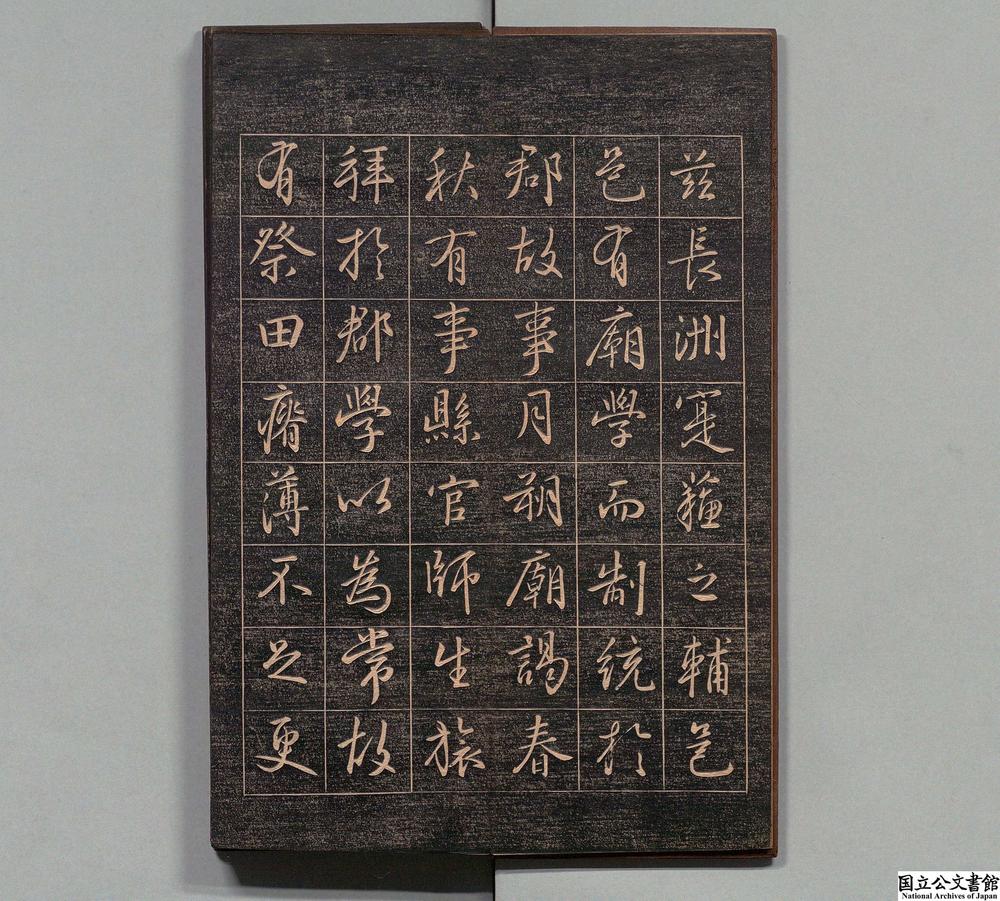 茲長洲寔蘓之輔邑
邑有廟學而制統於
郡故事月朔廟謁春
秋有事縣官師生旅
拜於郡學以為常故
有祭田瘠薄不足更
国立公文書館
National Archives of Japan